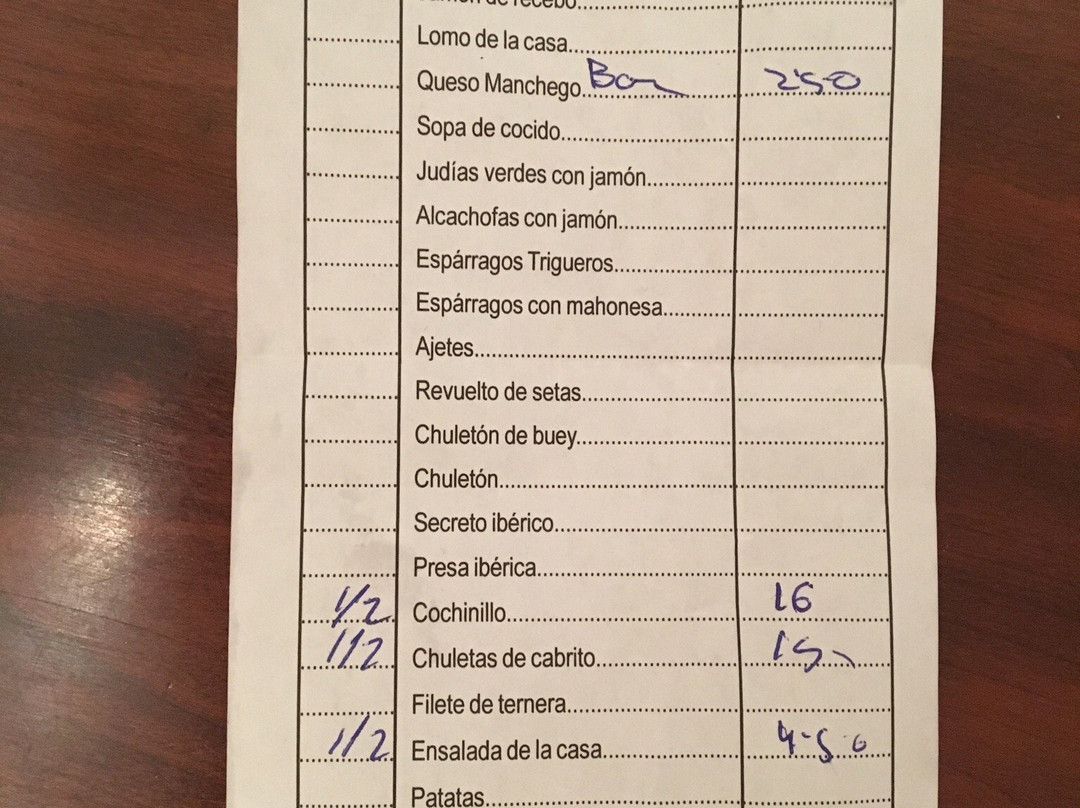 Jamón de recebo
Lomo de la casa
Queso Manchego 2'50
Sopa de cocido
Judías verdes con jamón
Alcachofas con jamón
Espárragos Trigueros
Espárragos con mahonesa
Ajetes
Revuelto de setas
Chuletón de buey
Chuletón
Secreto ibérico
Presa ibérica
1/2 Cochinillo 16
1/2 Chuletas de cabrito 15
Filete de ternera
1/2 Ensalada de la casa 4'50
Patatas